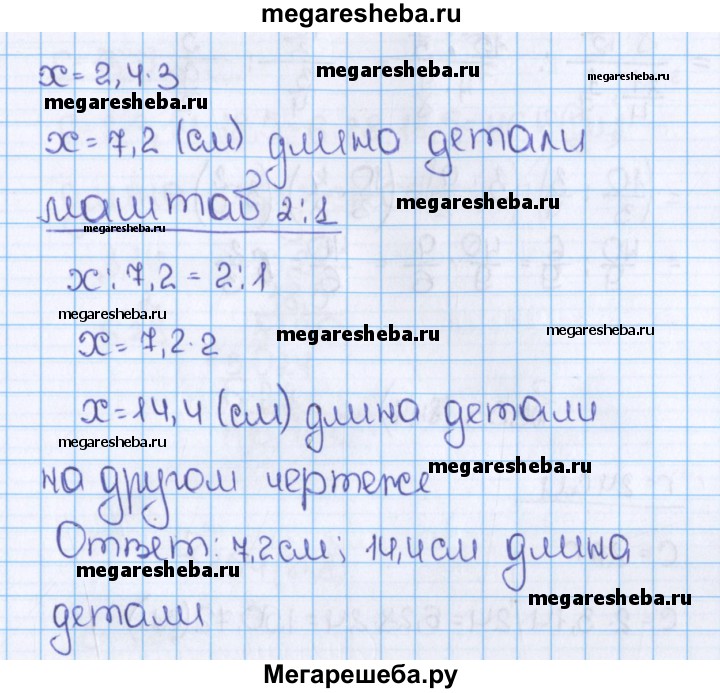 megaresheba.ru
x = 2,4 · 3
megaresheba.ru
megaresheba.ru
megaresheba.ru
x = 7,2 (см) длина детали
маштаб 2:1
megaresheba.ru
megaresheba.ru
x : 7,2 = 2:1
megaresheba.ru
x = 7,2 · 2
megaresheba.ru
megaresheba.ru
x = 14,4 (см) длина детали
megaresheba.ru
на другом чертеже
megaresheba.ru
Ответ: 7,2см; 14,4см длина
megaresheba.ru
megaresheba.ru
детали
Мегарешеба.ру